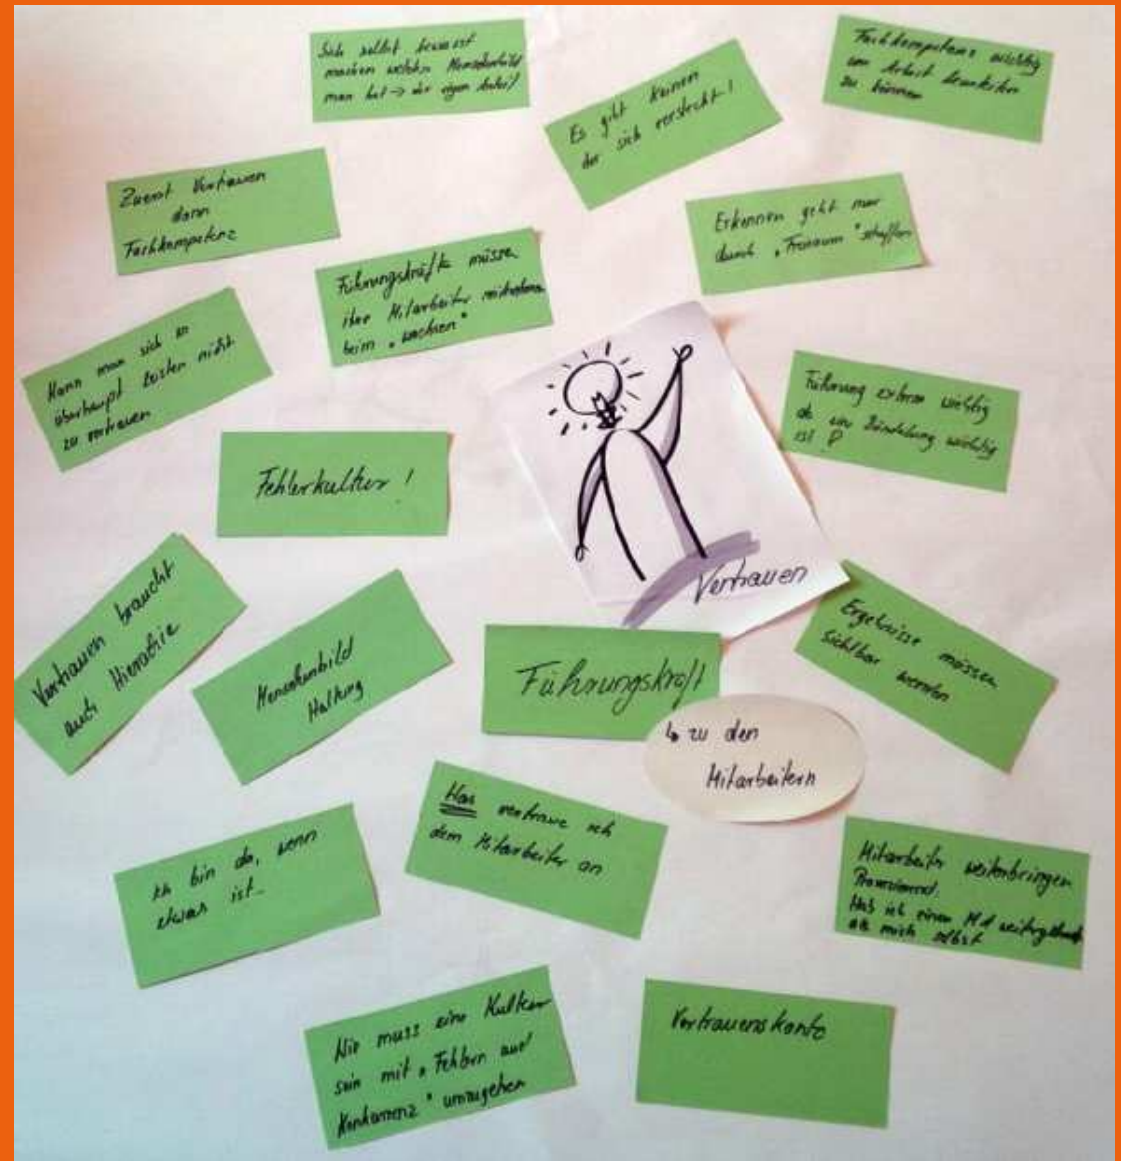 Sich selbst bewusst
machen welches Menschenbild
man hat → der eigen Anteil
Es gibt keinen
der sich versteckt!
Fachkompetenz wichtig
um Arbeit beurteilen
zu können
Zuerst Vertrauen
dann
Fachkompetenz
Erkennen geht nur
durch „Freiraum“ schaffen
Führungskräfte müssen
ihre Mitarbeiter mitnehmen
beim „wachsen“
Kann man sich es
überhaupt leisten nicht
zu vertrauen
Führung extrem wichtig
ob eine Bündelung wichtig
ist
Fehlerkultur!
Vertrauen
Vertrauen braucht
auch Hierachie
Menschenbild
Haltung
Führungskraft
↳ zu den
Mitarbeitern
Ergebnisse müssen
sichtbar werden
Was vertraue ich
dem Mitarbeiter an
Ich bin da, wenn
etwas ist..
Mitarbeiter weiterbringen
Hab ich einen MA weitergebracht
als mich selbst
Wie muss eine Kultur
sein mit „Fehlern und
Konkurrenz“ umzugehen
Vertrauenskonto